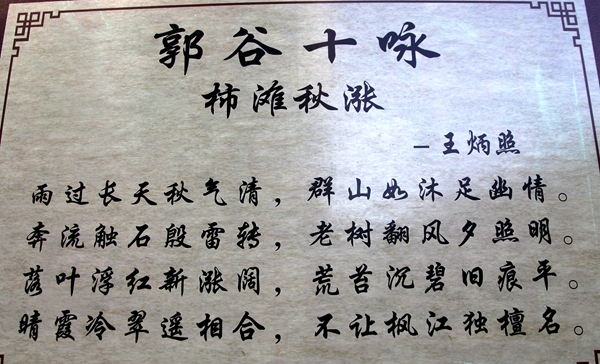 郭谷十咏
柿滩秋涨
–王炳照
雨过长天秋气清，群山如沐足幽情。
奔流触石殷雷转，老树翻风夕照明。
落叶浮红新涨阔，荒苔沉碧旧痕平。
晴霞冷翠遥相合，不让枫江独檀名。